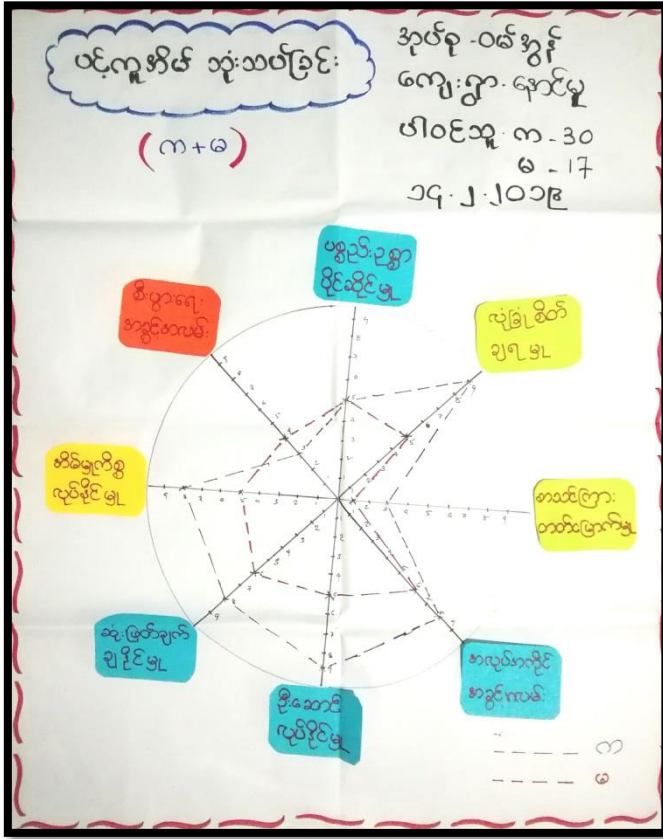 ပင့်ကူအိမ် သုံးသပ်ခြင်း
(က+မ)
အုပ်စု - ဝမ်အွန်
ကျေးရွာ - နောင်မူ
ပါဝင်သူ - က - 30
မ - 17
၁၄.၂.၂၀၁၉
ပစ္စည်းဥစ္စာ
ပိုင်ဆိုင်မှု
လုံခြုံစိတ်
ချရမှု
စာသင်ကြား
တတ်မြောက်မှု
အလုပ်အကိုင်
အခွင့်လမ်း
ဦးဆောင်
လုပ်နိုင်မှု
ဆုံးဖြတ်ချက်
ချနိုင်မှု
အိမ်မှုကိစ္စ
လုပ်နိုင်မှု
စီးပွားရေး
အခွင့်အလမ်း
က
မ